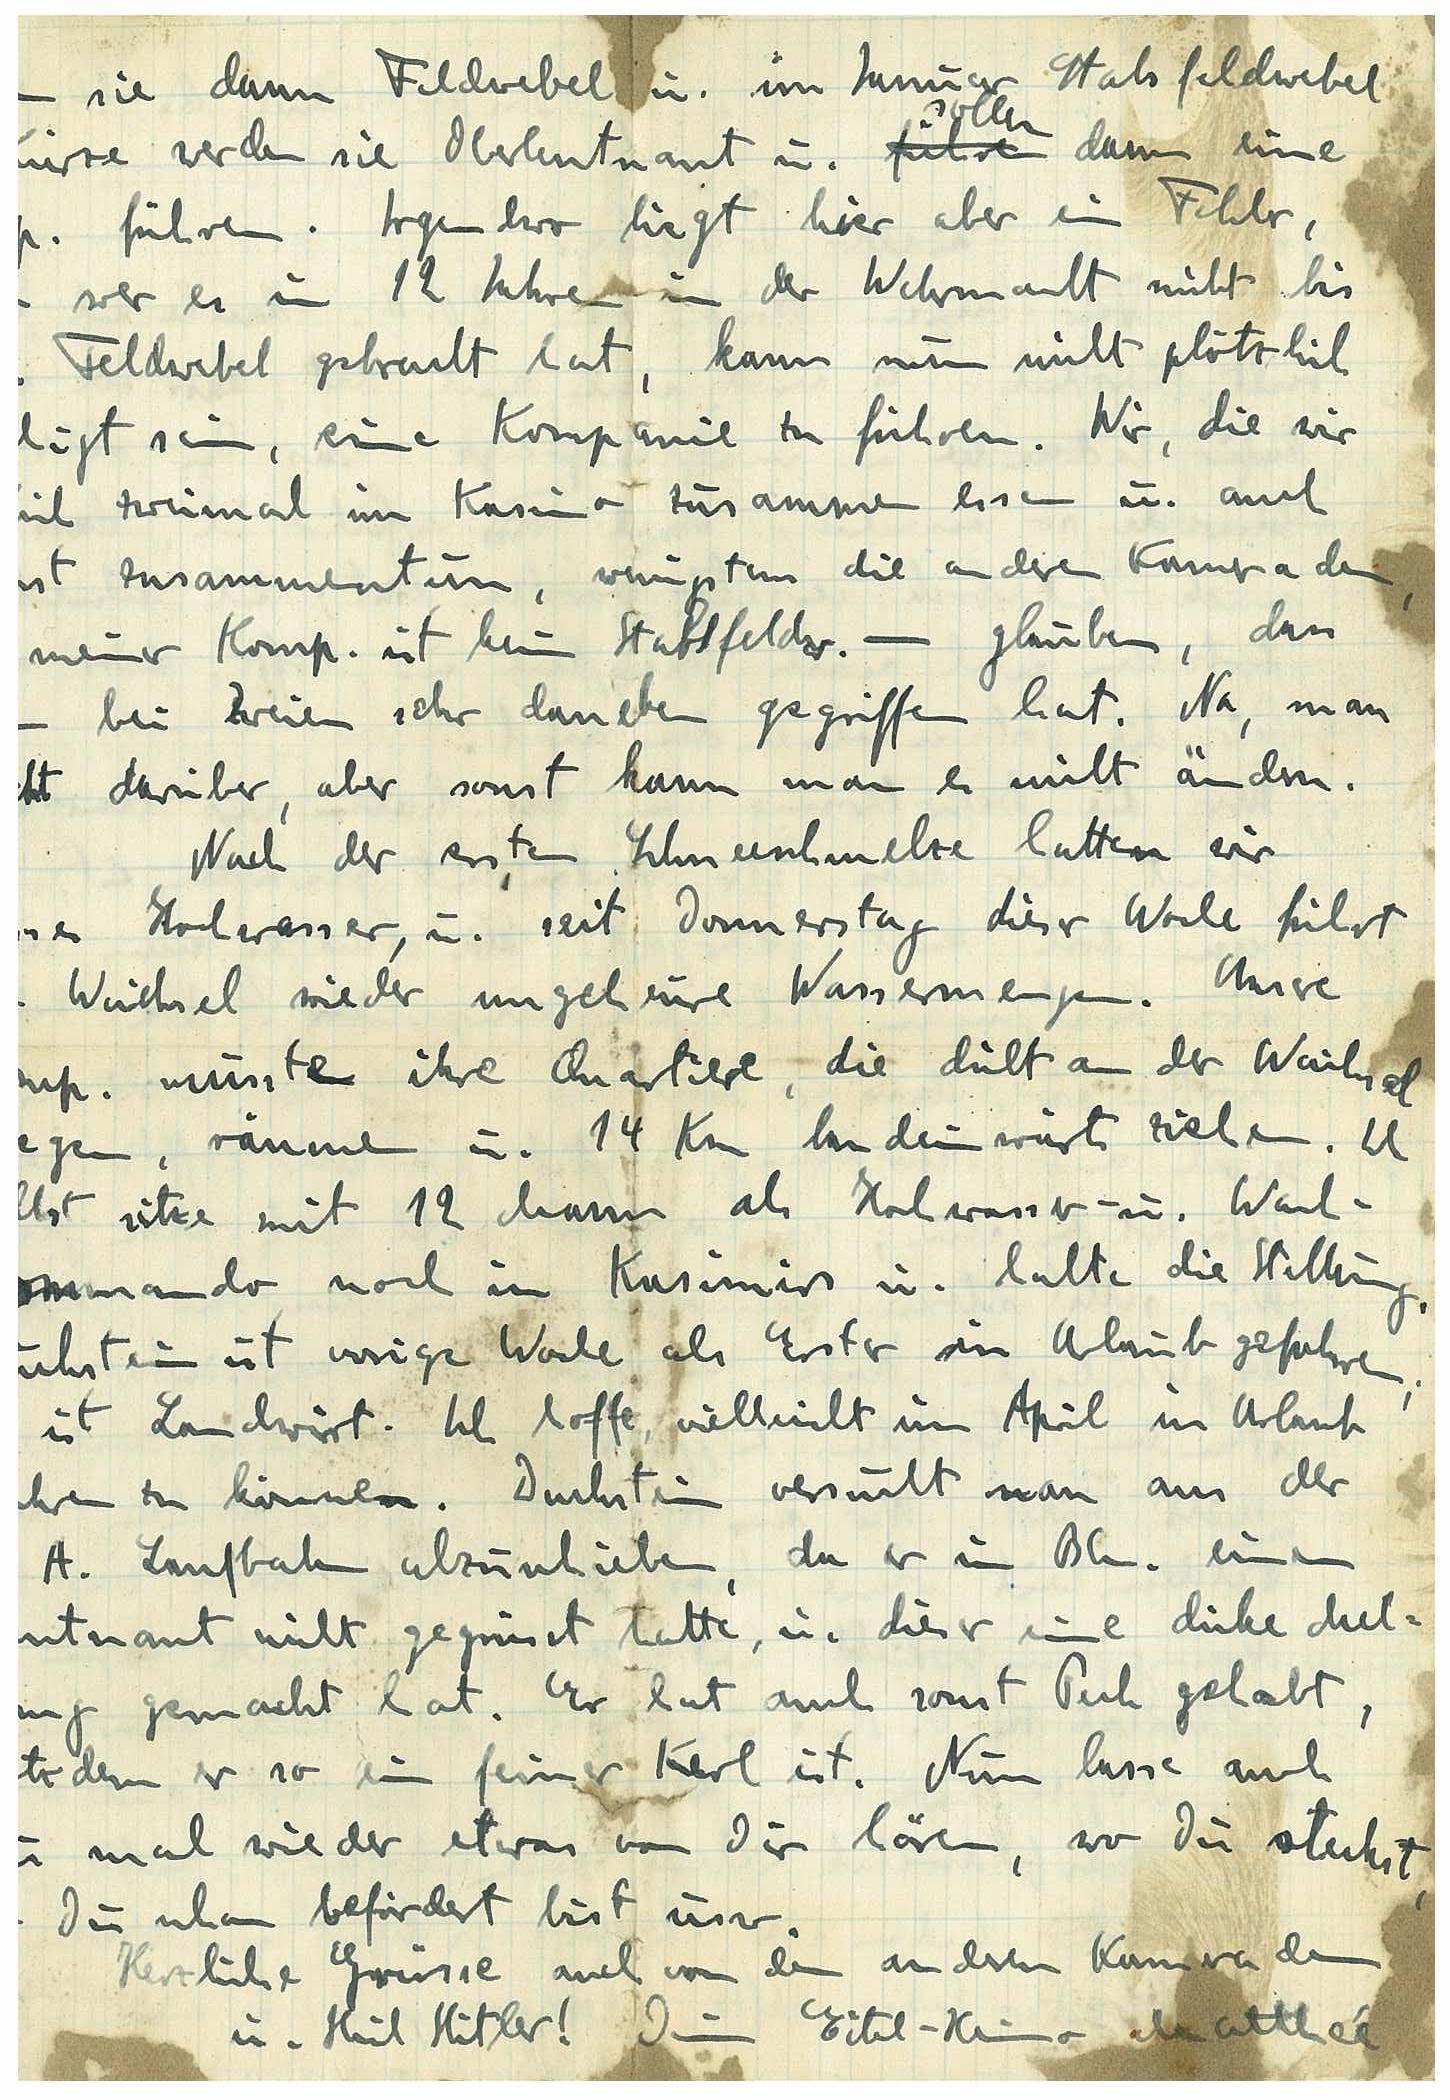 sie dann Feldwebel u. im Januar Stabsfeldwebel
werden sie Oberleutnant u. sollen dann eine
p. führen. Irgendwo liegt hier aber ein Fehler,
wer es in 12 Jahren in der Wehrmacht nicht bis
Feldwebel gebracht hat, kann nun nicht plötzlich
higt sein, eine Kompanie zu führen. Wir, die wir
zweimal im Kasino zusammen essen u. auch
st zusammentun, wenigstens die anderen Kameraden,
meiner Komp. ist kein Stabsfeldw. — glauben, dass
bei Zweien sehr daneben gegriffen hat. Na, man
cht darüber, aber sonst kann man es nicht ändern.
Nach der ersten Schneeschmelze hatten wir
Hochwasser, u. seit Donnerstag dieser Woche führt
Weichsel wieder ungeheure Wassermengen. Unsre
mp. musste ihre Quartiere, die dicht an der Weichsel
egen, räumen u. 14 Km landeinwärts ziehen. Ich
lbst sitze mit 12 Mann als Hochwasser- u. Wach-
ommando noch in Kasimirs u. halte die Stellung.
uchstein ist vorige Woche als Erster in Urlaub gefahren,
ist Landwirt. Ich hoffe, vielleicht im April in Urlaub
hren zu können. Duchstein versucht man aus der
A. Laufbahn abzuschieben, da er in Bln. einen
utnant nicht gegrüsst hatte, u. dieser eine dicke Mel-
ung gemacht hat. Er hat auch sonst Pech gehabt,
tzdem er so ein feiner Kerl ist. Nun lasse auch
u mal wieder etwas von Dir hören, wo Du steckst,
Du schon befördert bist usw.
Herzliche Grüsse auch von den anderen Kameraden
u. Heil Hitler! Dein Eitel-Heino Matthée